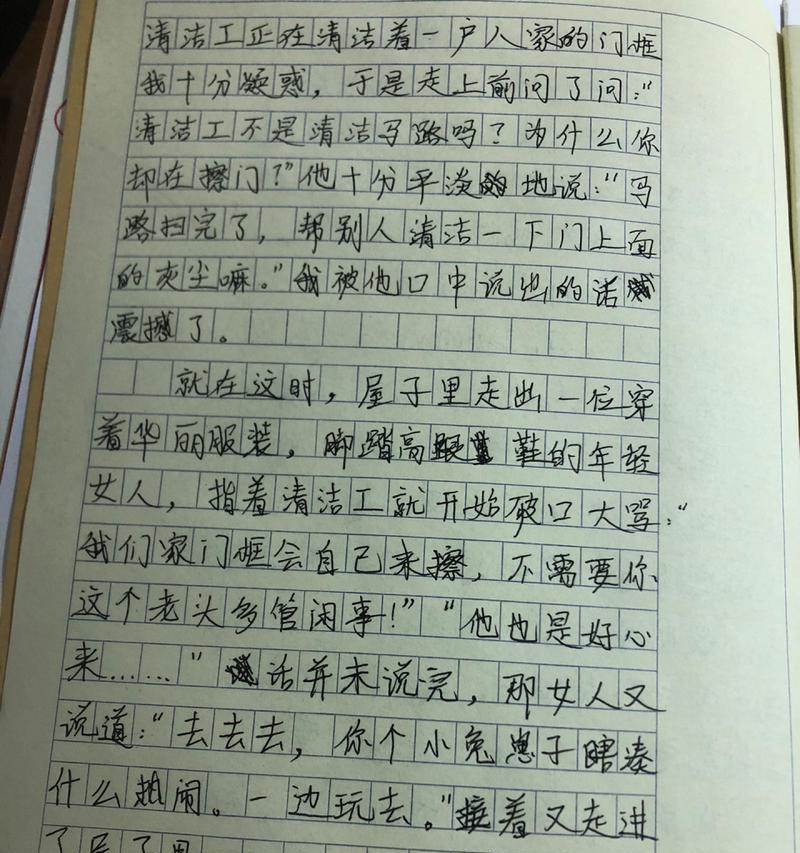 清洁工正在清洁着一户人家的门框
我十分疑惑，于是走上前问了问：“
清洁工不是清洁马路吗？为什么你
却在擦门？”他十分平淡地说：“马
路扫完了，帮别人清洁一下门上面
的灰尘嘛。”我被他口中说出的话
震撼了。
就在这时，屋子里走出一位穿
着华丽服装，脚踏高跟鞋的年轻
女人，指着清洁工就开始破口大骂：“
我们家门框会自己来擦，不需要你
这个老头多管闲事！”“他也是好心
来……”话并未说完，那女人又
说道：“去去去，你个小兔崽子瞎凑
什么热闹。一边玩去。”接着又走进
了